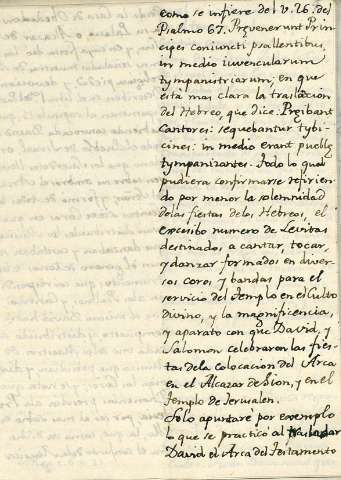 como se infiere del v. 26. del
Psalmo 67. Prevenerunt Prin-
cipes coniuncti psallentibus,
in medio iuvencularum
tympanistriarum; en que
está mas clara la traslacion
del Hebreo, que dice: Preibant
Cantores: sequebantur tybi-
cines: in medio erant puellę
tympanizantes. Todo lo qual
pudiera confirmarse refirien-
do por menor la solemnidad
de las fiestas de los Hebreos, el
excesibo numero de Levitas
destinados a cantar, tocar,
y danzar formados en diver-
sos coros y bandas para el
servicio del Templo en el culto
divino, y la magnificencia,
y aparato con que David, y
Salomon celebraron las fies-
tas de la colocacion del Arca
en el Alcazar de Sion, y en el
Templo de Jerusalen.
Solo apuntaré por exemplo
lo que se practicó al trasladar
David el Arca del Testamento